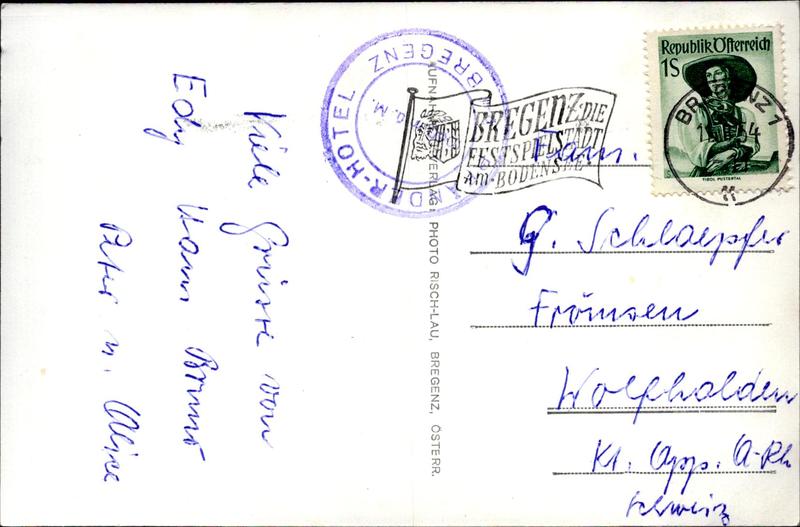 Viele Grüsse von
Edy Hans Bruno
Peter u. Alice
PHOTO RISCH-LAU, BREGENZ, ÖSTERR.
HOTEL
BREGENZ
BREGENZ·DIE
FESTSPIELSTADT
AM·BODENSEE
Republik Österreich
1S
TIROL PUSTERTAL
BREGENZ 1
Fam.
G. Schlaepfer
Frömsen
Wolfhalden
Kt. App. A-Rh
Schweiz